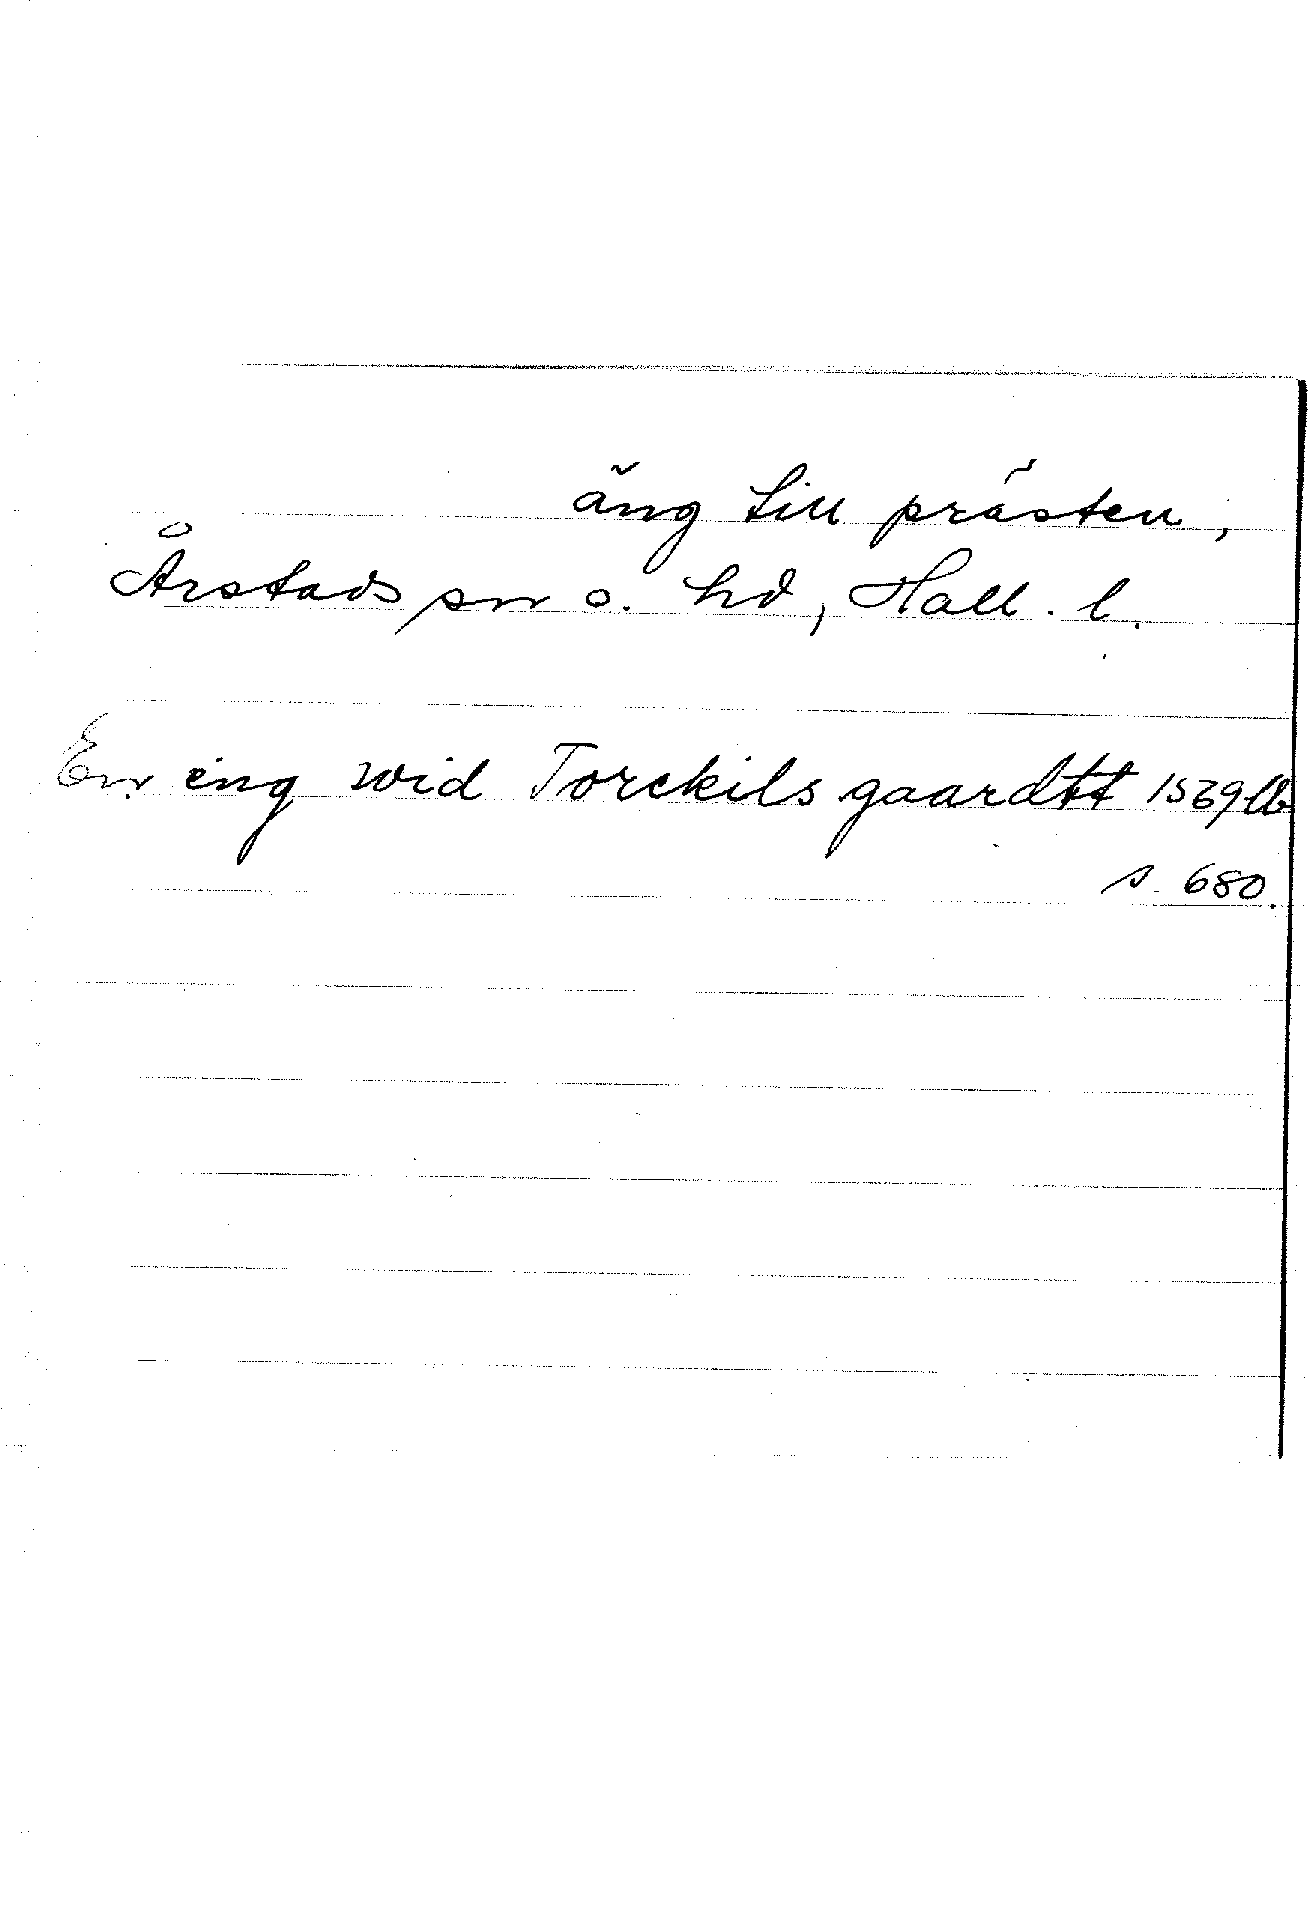 äng till prästen,
Årstads sn o. hd, Hall. l.
En eng wid Torckils gaardtt 1569 lb
s. 680.